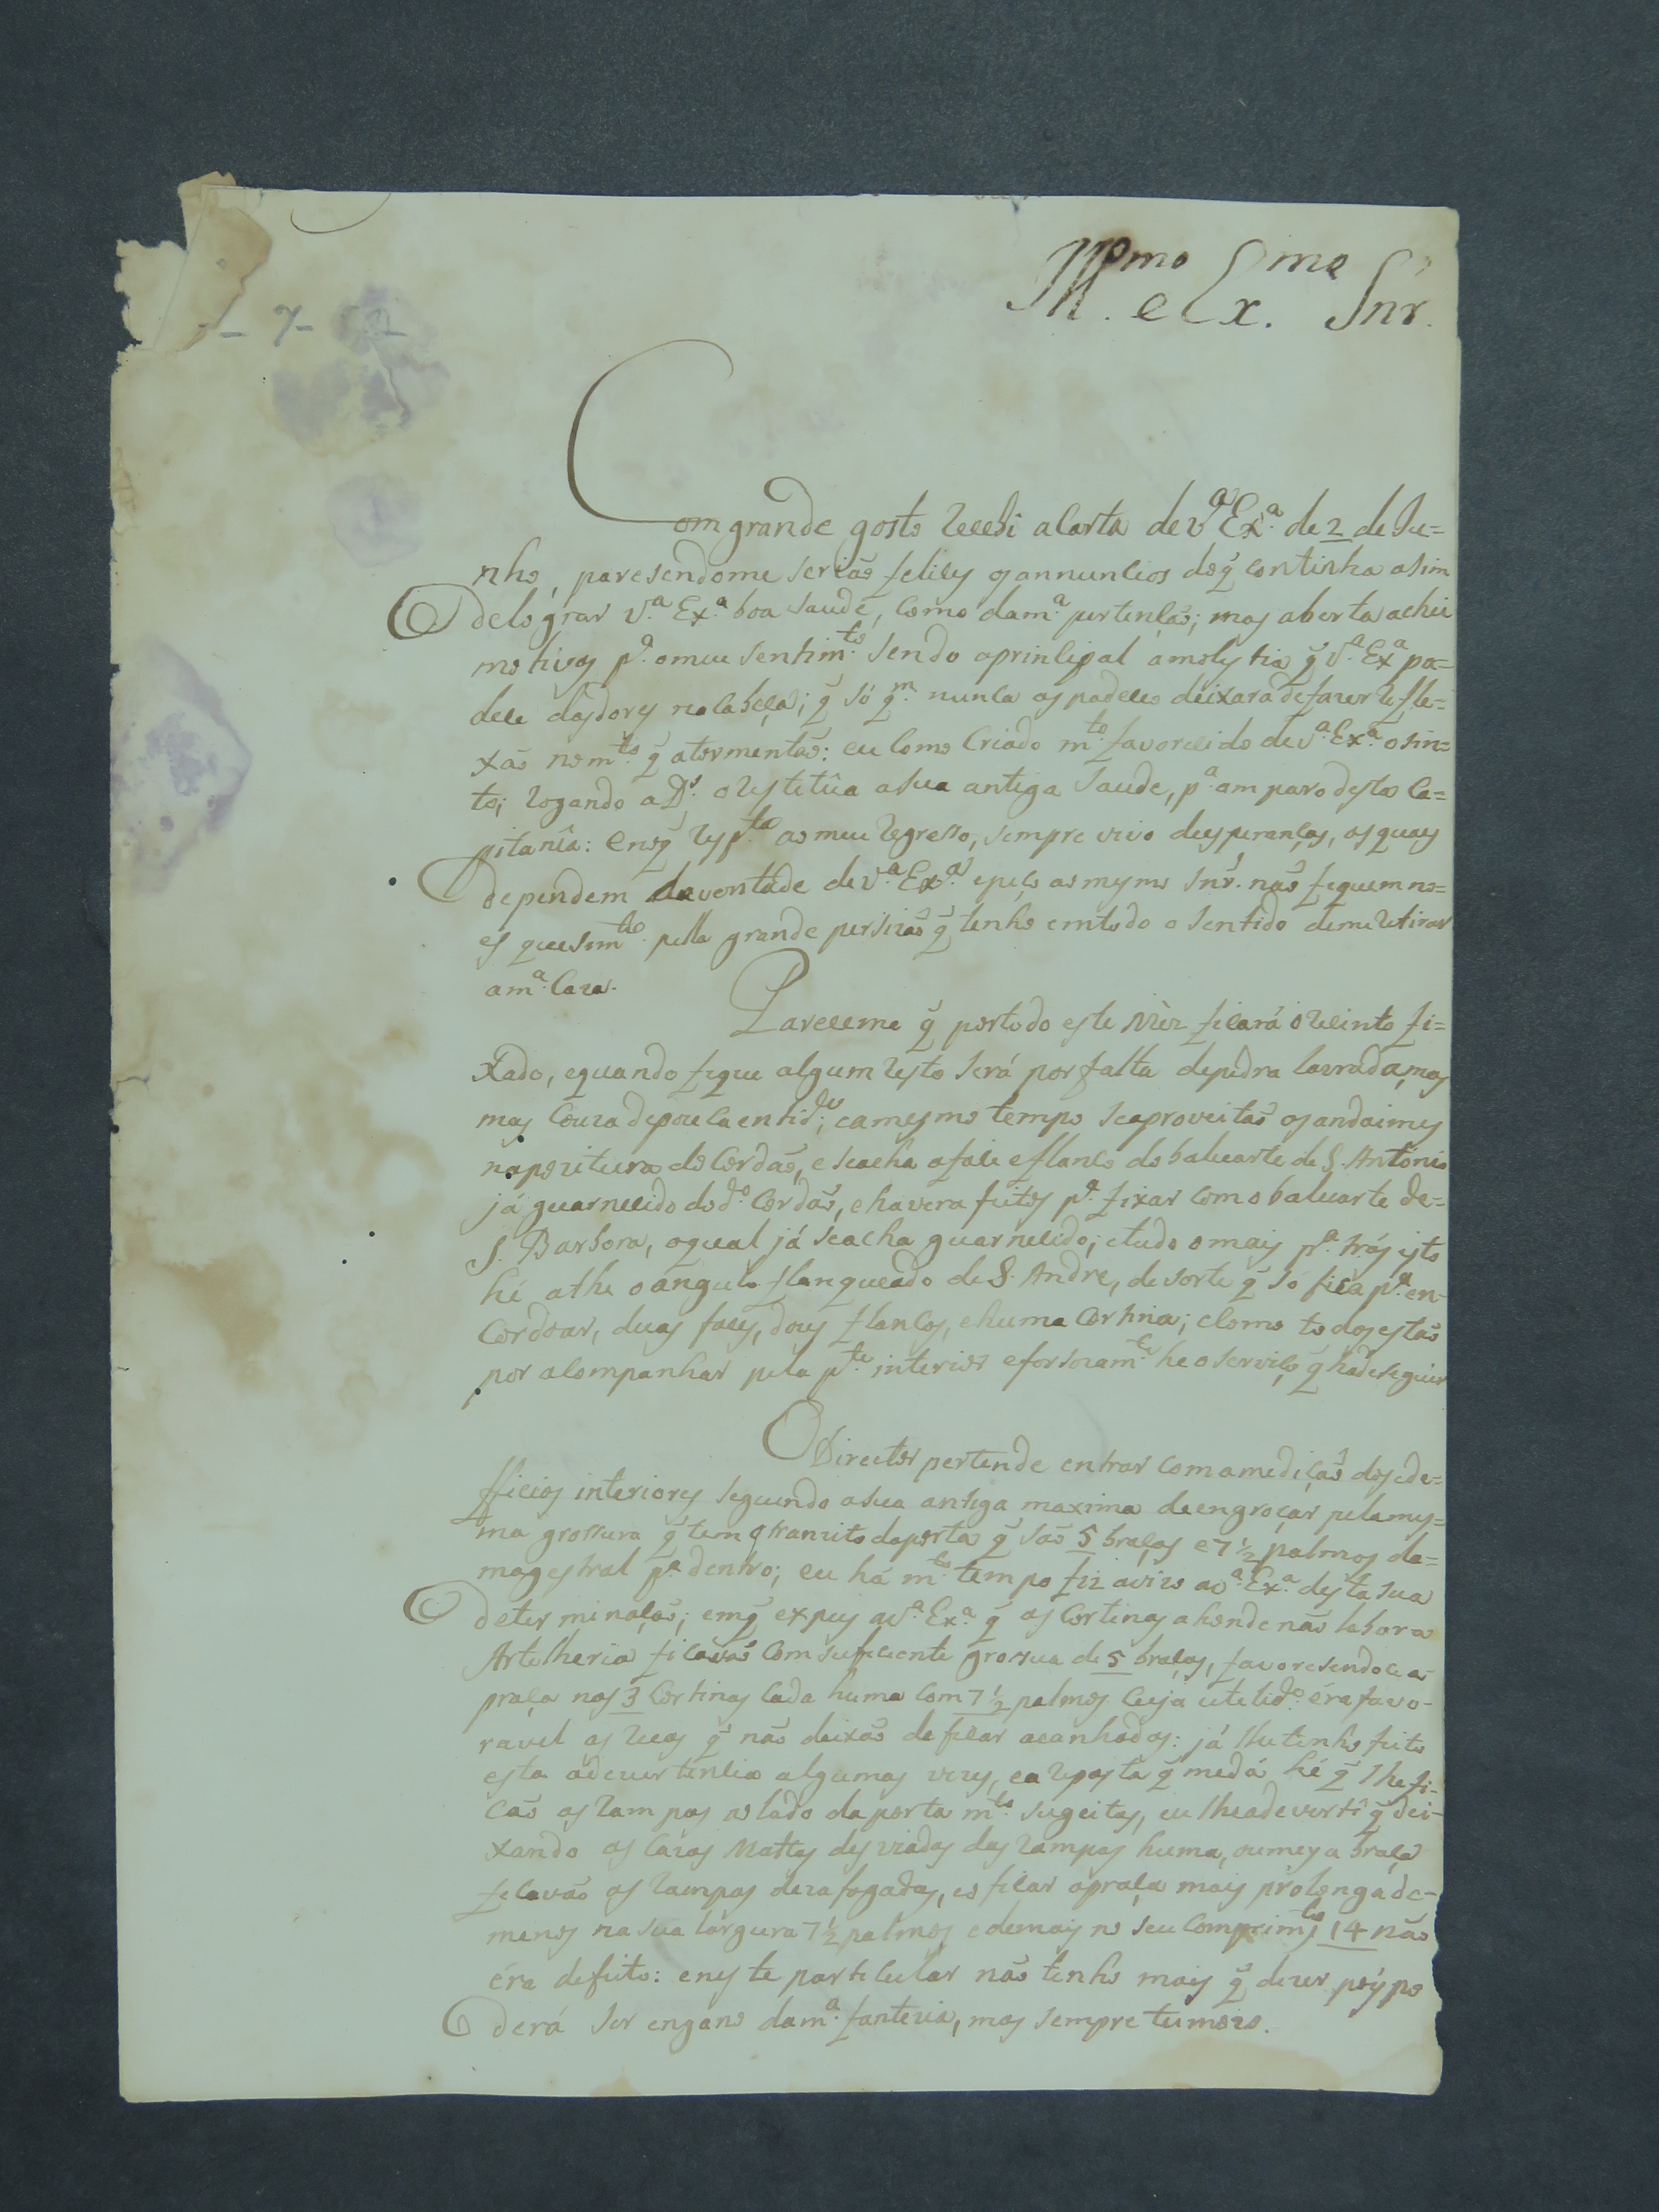 Ill.mo e Ex.mo Snr.
- 7 -
Com grande gosto recebi a Carta de V.ª Ex.ª de 2 de Ju=
nho, paresendome serião felices os annuncios do q̃ continha asim
delógrar V.ª Ex.ª boa saude, como dam.ª pertenção; mas aberta achei
motivos p.ª omeu sentim.to sendo oprincipal amolestia q̃ V.ª Ex.ª pa=
dece dasdores nacabeça; q̃ só q.m nunca as padeceo deixará defazer refle=
xão nom.to q̃ atormentão: eu como Criado m.to favorecido de V.ª Ex.ª osin=
to; rogando a D.s o restetûa asua antiga saude, p.ª amparo desta Ca=
pitanîa: enoq̃ resp.ta ao meu regresso, sempre vivo desperanças, as quaes
dependem da vontade de V.ª Ex.ª epeço aomesmo Snr. não fiquem no=
esquesim.to pella grande percizão q̃ tenho emtodo o sentido deme retirar
am.ª Caza.
Pareceme q̃ portodo este Mez ficará o recinto fi=
xado, equando fique algum resto será por falta depedra lavrada, mas
mas couza depouca entid.e; eaomesmo tempo seaproveitão osandaimes
napozitura do Cordão, eseacha aface eflanco do baluarte de S. Antonio
já guarnecido dod.o Cordão, ehavera feitos p.ª fixar como baluarte de-
S. Barbora, oqual já seacha guarnecido; etudo omais p.ª trás isto
hé athe oangulo flanqueado de S. Andre, desorte q̃ só fica p.ª en-
Cordoar, duas faces, dous flancos, ehuma Cortina; ecomo todosestão
por acompanhar pela p.te interior eforsozam.te he oserviço q̃ hadeseguir
O Director pertende entrar comamedição dosede=
fficios interiores segundo asua antiga maxima deengroçar pelames=
ma grossura q̃ tem otranzito daporta q̃ são 5 braças e 7½ palmos da=
magestral p.ª dentro; eu há m.to tempo fiz avizo aV.ª Ex.ª desta sua
determinação; emq̃ expus aV.ª Ex.ª q̃ as Cortinas ahonde não labora
Artelheria ficavão Com suficiente grossura de 5 braças, favoresendocea
praça nas 3 Cortinas Cada huma Com 7½ palmos Cuja utelid.e éra favo-
ravel as ruas q̃ não deixão deficar acanhadas: já lhetenho feito
esta adevertencia algumas vezes, ea reposta q̃ medá hé q̃ lhefi-
cão as rampas aolado daporta m.to sugeitas, eu lheadevertî q̃ dei-
xando as Cazas Mattas desviadas das rampas huma, oumeya braça
ficavão as rampas dezafogadas, eo ficar apraça mais prolongada-
menos nasua lárgura 7½ palmos edemais no seu Comprim.to 14 não
éra defeito: eneste particular não tenho mais q̃ dizer pois po
derá ser engano dam.ª fantezia, mas sempre tumozo.